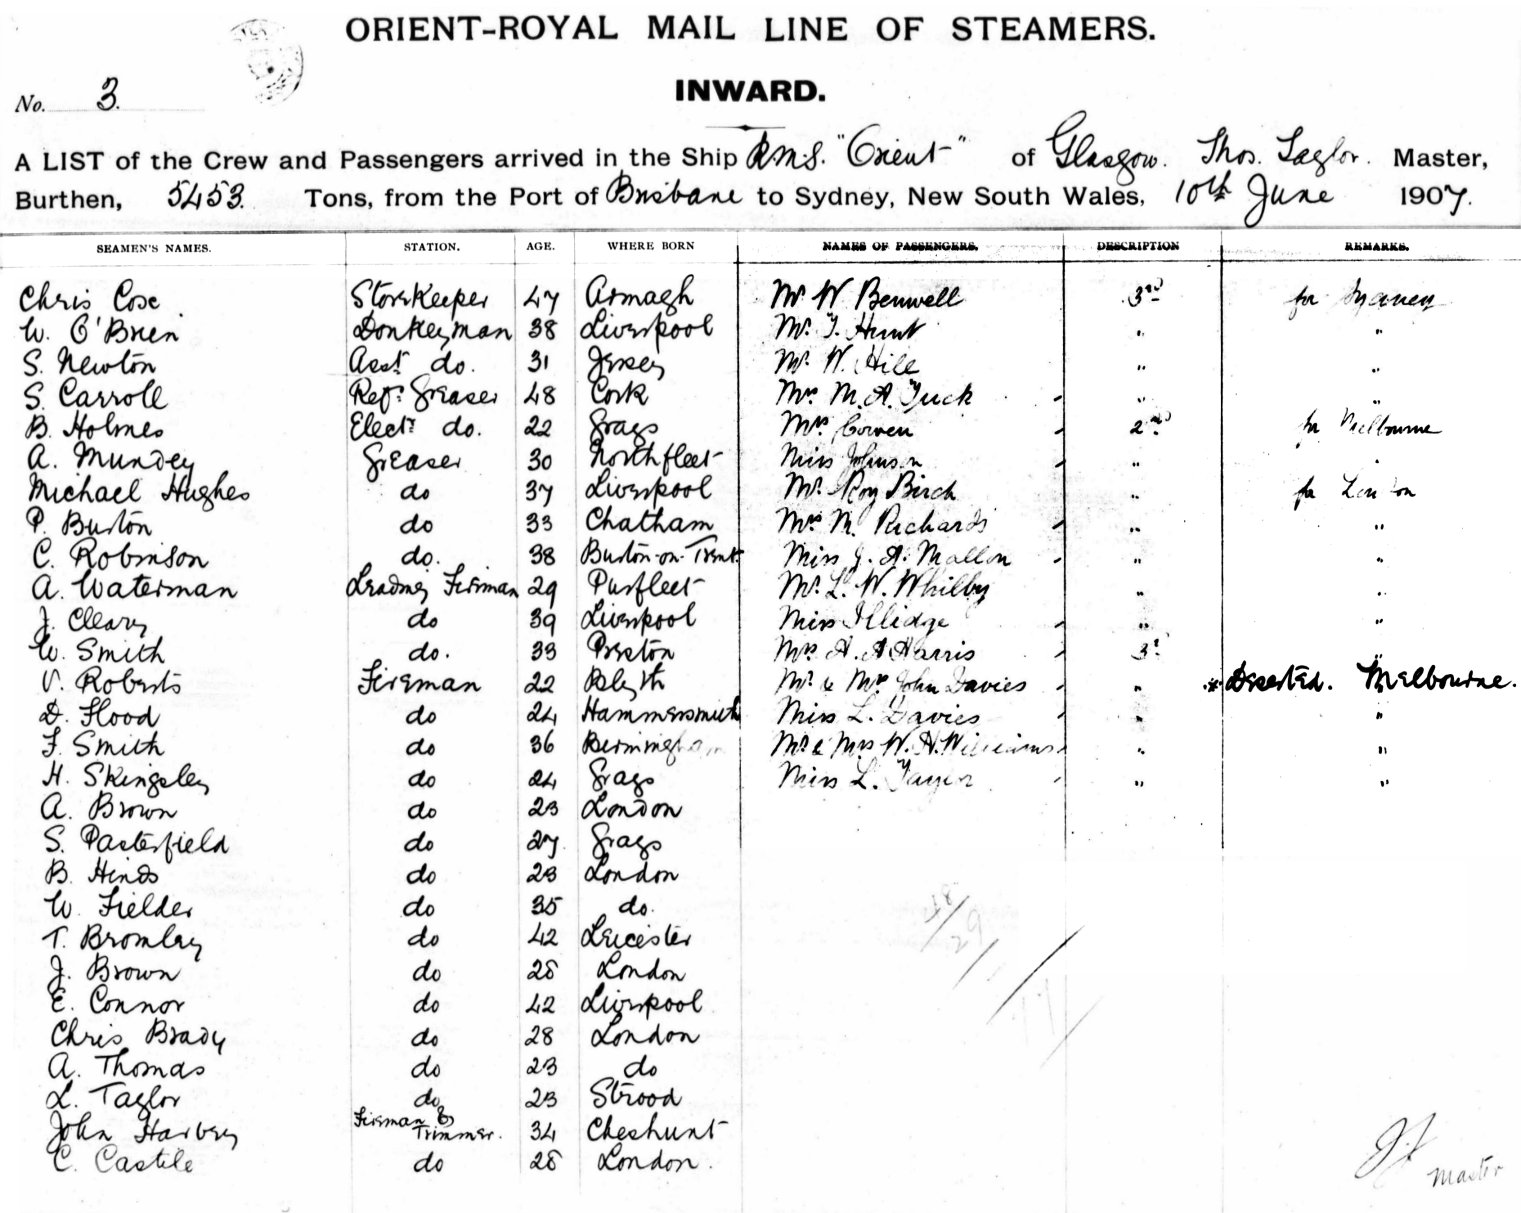 ORIENT-ROYAL MAIL LINE OF STEAMERS.
No. 3.
INWARD.
A LIST of the Crew and Passengers arrived in the Ship R.M.S. "Orient" of Glasgow. Thos. Taylor. Master,
Burthen, 5453. Tons, from the Port of Brisbane to Sydney, New South Wales, 10th June 1907.
SEAMEN'S NAMES. STATION. AGE. WHERE BORN NAMES OF PASSENGERS. DESCRIPTION REMARKS.
Chris Cose Storekeeper 47 Armagh Mr W. Benwell 3rd for Sydney
W. O'Brien Donkeyman 38 Liverpool Mr. T. Hunt " "
S. Newton Asst. do. 31 Jersey Mr. W. Hill " "
S. Carroll Refr. Greaser 48 Cork Mrs. M. A. Tuck " "
B. Holmes Elect. do. 22 Grays Mrs. Cowen 2nd for Melbourne
A. Mundey Greaser 30 Northfleet Miss Johnson " "
Michael Hughes do 37 Liverpool Mr. Roy Birch " for London
P. Burton do 33 Chatham Mrs M. Richards " "
C. Robinson do. 38 Burton-on-Trent Miss J. A. Mallon " "
A. Waterman Leading Fireman 29 Purfleet Mr. L. W. Whilby " "
J. Cleary do 39 Liverpool Miss Illidge " "
W. Smith do. 33 Preston Mrs A. A Harris 3rd "
V. Roberts Fireman 22 Blyth Mr. & Mrs John Davies " " * Deserted. Melbourne.
D. Flood do 24 Hammersmith Miss L. Davies " "
F. Smith do 36 Birmingham Mr. & Mrs W. H. Williams " "
H. Skingsley do 24 Grays Miss L. Taylor " "
A. Brown do 23 London
S. Pasterfield do 27. Grays
B. Hinds do 23 London
W. Fielder do 35 do.
T. Bromley do 42 Leicester
J. Brown do 28 London
E. Connor do 42 Liverpool
Chris Brady do 28 London
A. Thomas do 23 do
L. Taylor do 23 Strood
John Harvey Fireman & Trimmer. 34 Cheshunt
C. Castile do 28 London.
Master